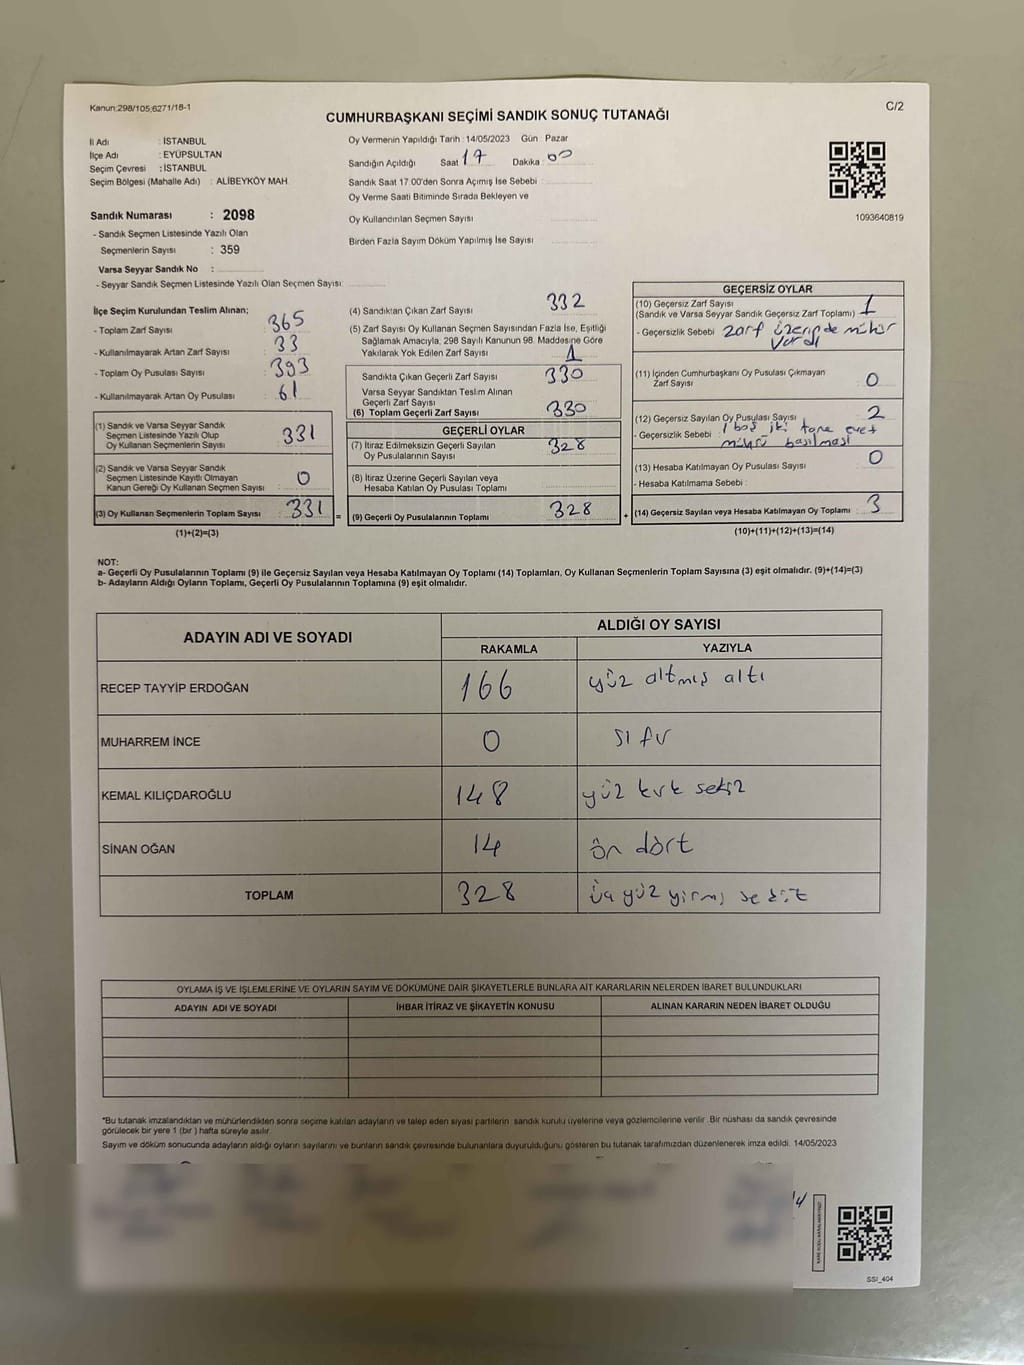 Kanun:298/105;6271/18-1
C/2
CUMHURBAŞKANI SEÇİMİ SANDIK SONUÇ TUTANAĞI
İl Adı : İSTANBUL
İlçe Adı : EYÜPSULTAN
Seçim Çevresi : İSTANBUL
Seçim Bölgesi (Mahalle Adı) : ALİBEYKÖY MAH.
Sandık Numarası : 2098
- Sandık Seçmen Listesinde Yazılı Olan
Seçmenlerin Sayısı : 359
Varsa Seyyar Sandık No :
- Seyyar Sandık Seçmen Listesinde Yazılı Olan Seçmen Sayısı:
Oy Vermenin Yapıldığı Tarih : 14/05/2023 Gün : Pazar
Sandığın Açıldığı Saat 17 Dakika : 00
Sandık Saat 17.00'den Sonra Açımış İse Sebebi :
Oy Verme Saati Bitiminde Sırada Bekleyen ve
Oy Kullandırılan Seçmen Sayısı
Birden Fazla Sayım Döküm Yapılmış İse Sayısı
1093640819
İlçe Seçim Kurulundan Teslim Alınan;
- Toplam Zarf Sayısı 365
- Kullanılmayarak Artan Zarf Sayısı : 33
- Toplam Oy Pusulası Sayısı : 393
- Kullanılmayarak Artan Oy Pusulası : 61
(1) Sandık ve Varsa Seyyar Sandık
Seçmen Listesinde Yazılı Olup
Oy Kullanan Seçmenlerin Sayısı : 331
(2) Sandık ve Varsa Seyyar Sandık
Seçmen Listesinde Kayıtlı Olmayan
Kanun Gereği Oy Kullanan Seçmen Sayısı : 0
(3) Oy Kullanan Seçmenlerin Toplam Sayısı : 331
(1)+(2)=(3)
=
(4) Sandıktan Çıkan Zarf Sayısı 332
(5) Zarf Sayısı Oy Kullanan Seçmen Sayısından Fazla İse, Eşitliği
Sağlamak Amacıyla, 298 Sayılı Kanunun 98. Maddesine Göre
Yakılarak Yok Edilen Zarf Sayısı 1
Sandıkta Çıkan Geçerli Zarf Sayısı 330
Varsa Seyyar Sandıktan Teslim Alınan
Geçerli Zarf Sayısı
(6) Toplam Geçerli Zarf Sayısı 330
GEÇERLİ OYLAR
(7) İtiraz Edilmeksizin Geçerli Sayılan
Oy Pusulalarının Sayısı 328
(8) İtiraz Üzerine Geçerli Sayılan veya
Hesaba Katılan Oy Pusulası Toplamı
(9) Geçerli Oy Pusulalarının Toplamı 328
+
GEÇERSİZ OYLAR
(10) Geçersiz Zarf Sayısı
(Sandık ve Varsa Seyyar Sandık Geçersiz Zarf Toplamı) : 1
- Geçersizlik Sebebi : zarf üzeripde mühür
vardı
(11) İçinden Cumhurbaşkanı Oy Pusulası Çıkmayan
Zarf Sayısı 0
(12) Geçersiz Sayılan Oy Pusulası Sayısı : 2
- Geçersizlik Sebebi : 1 boş iki tane evet
mührü basılması
(13) Hesaba Katılmayan Oy Pusulası Sayısı 0
- Hesaba Katılmama Sebebi :
(14) Geçersiz Sayılan veya Hesaba Katılmayan Oy Toplamı : 3
(10)+(11)+(12)+(13)=(14)
NOT:
a- Geçerli Oy Pusulalarının Toplamı (9) ile Geçersiz Sayılan veya Hesaba Katılmayan Oy Toplamı (14) Toplamları, Oy Kullanan Seçmenlerin Toplam Sayısına (3) eşit olmalıdır. (9)+(14)=(3)
b- Adayların Aldığı Oyların Toplamı, Geçerli Oy Pusulalarının Toplamına (9) eşit olmalıdır.
ADAYIN ADI VE SOYADI
ALDIĞI OY SAYISI
RAKAMLA YAZIYLA
RECEP TAYYİP ERDOĞAN 166 yüz altmış altı
MUHARREM İNCE 0 sıfır
KEMAL KILIÇDAROĞLU 148 yüz kırk sekiz
SİNAN OĞAN 14 ön dört
TOPLAM 328 üç yüz yirmi sekiz
OYLAMA İŞ VE İŞLEMLERİNE VE OYLARIN SAYIM VE DÖKÜMÜNE DAİR ŞİKAYETLERLE BUNLARA AİT KARARLARIN NELERDEN İBARET BULUNDUKLARI
ADAYIN ADI VE SOYADI İHBAR İTİRAZ VE ŞİKAYETİN KONUSU ALINAN KARARIN NEDEN İBARET OLDUĞU
*Bu tutanak imzalandıktan ve mühürlendikten sonra seçime katılan adayların ve talep eden siyasi partilerin sandık kurulu üyelerine veya gözlemcilerine verilir. Bir nüshası da sandık çevresinde
görülecek bir yere 1 (bir ) hafta süreyle asılır.
Sayım ve döküm sonucunda adayların aldığı oyların sayılarını ve bunların sandık çevresinde bulunanlara duyurulduğunu gösteren bu tutanak tarafımızdan düzenlenerek imza edildi. 14/05/2023
SSI_404